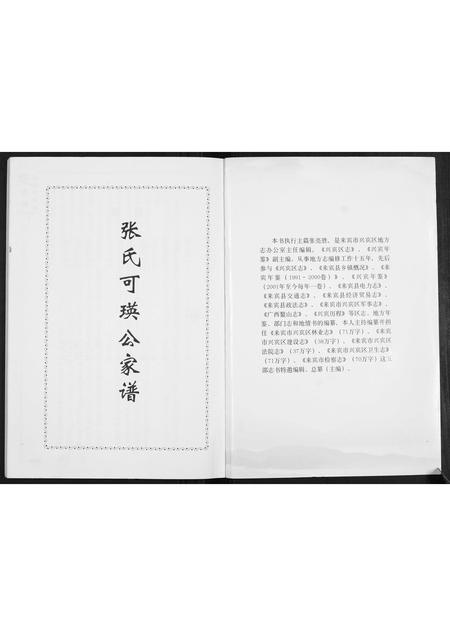 张氏可瑛公家谱
本书执行主编张亮胜，是来宾市兴宾区地方
志办公室主任编辑，《兴宾区志》、《兴宾年
鉴》副主编。从事地方志编修工作十五年，先后
参与《兴宾区志》、《来宾县乡镇概况》、《来
宾年鉴（1991－2000卷）》、《兴宾年鉴》
（2001年至今每年一卷）、《来宾县电力志》、
《来宾县交通志》、《来宾县经济贸易志》、
《来宾县政法志》、《来宾市兴宾区军事志》、
《广西鳌山志》、《兴宾历程》等区志、地方年
鉴、部门志和地情书的编纂。本人主持编纂并担
任《来宾市兴宾区林业志》（71万字）、《来宾
市兴宾区建设志》（38万字）、《来宾市兴宾区
法院志》（37万字）、《来宾市兴宾区卫生志》
（71万字）、《来宾市检察志》（70万字）这三
部志书特邀编辑、总纂（主编）。